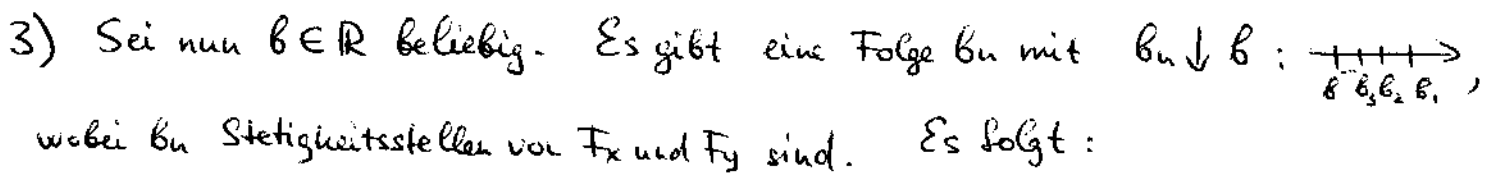 3) Sei nun b ∈ ℝ beliebig. Es gibt eine Folge bₙ mit bₙ ↓ b : b b₃ b₂ b₁ ,
wobei bₙ Stetigkeitsstellen von Fₓ und Fy sind. Es folgt :